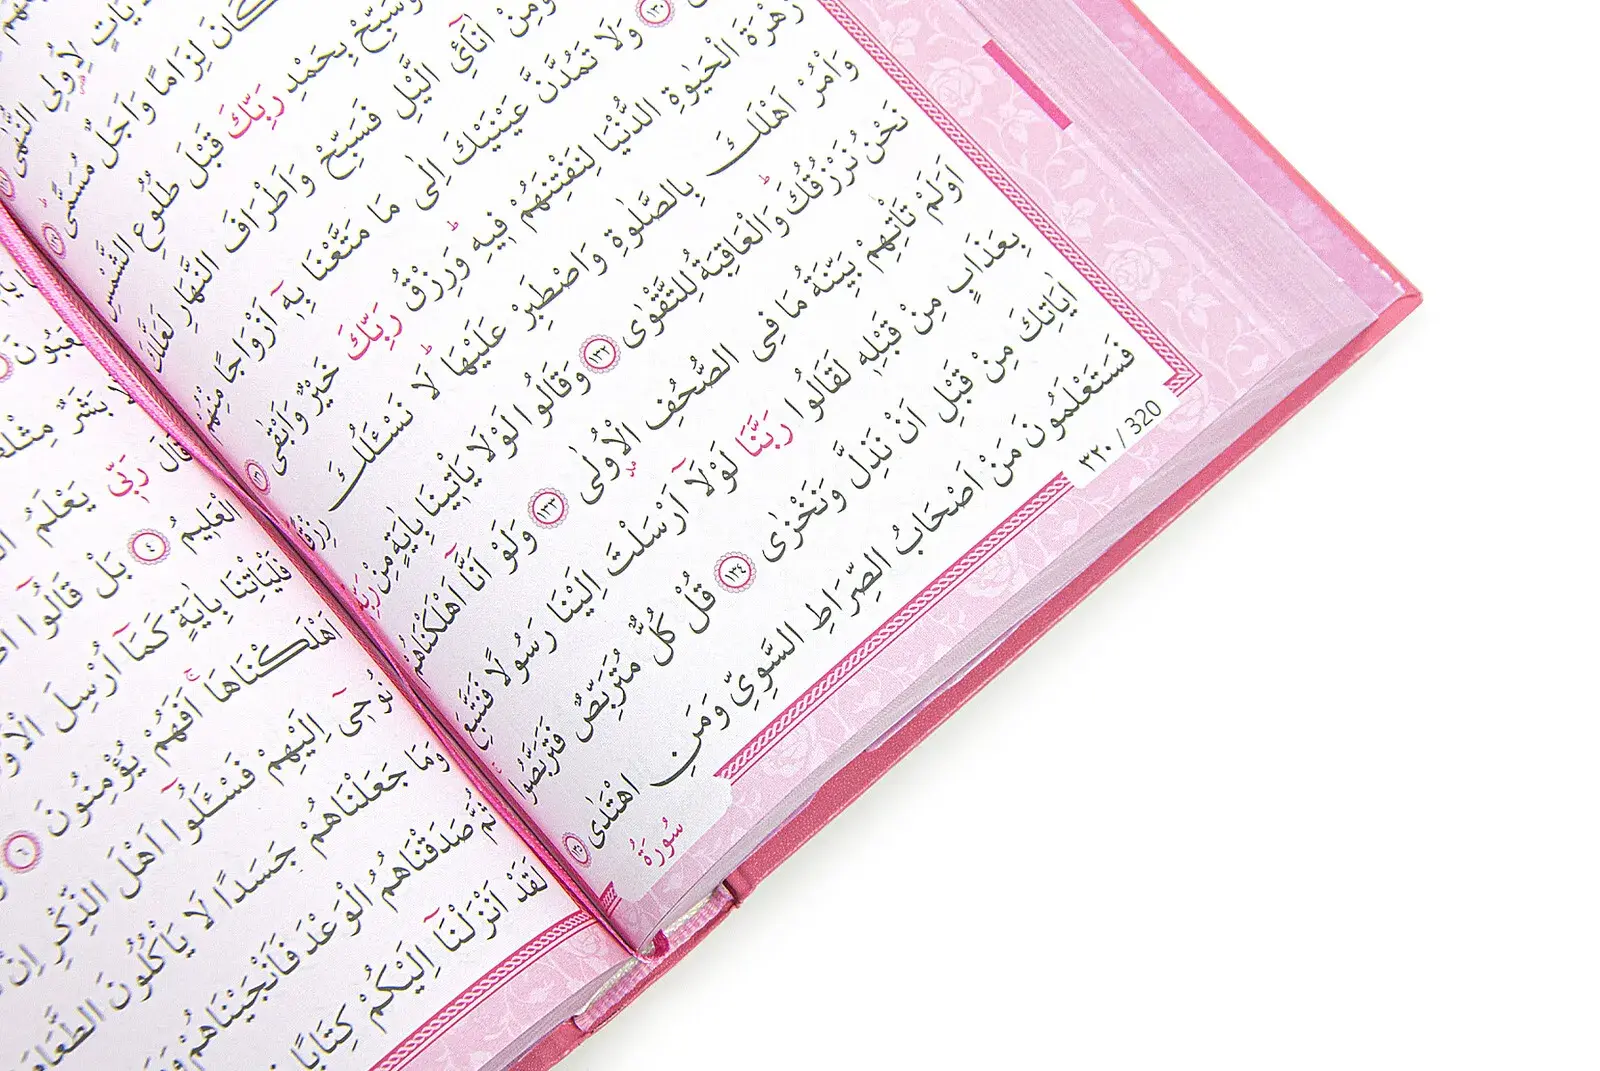 لِاُولِي النُّهٰى
كَانَ لِزَامًا وَاَجَلٌ مُسَمًّى ١٢٩
وَسَبِّحْ بِحَمْدِ رَبِّكَ قَبْلَ طُلُوعِ الشَّمْسِ
وَمِنْ اٰنَآئِ الَّيْلِ فَسَبِّحْ وَاَطْرَافَ النَّهَارِ لَعَلَّكَ
١٣٠ وَلَا تَمُدَّنَّ عَيْنَيْكَ اِلٰى مَا مَتَّعْنَا بِهٖٓ اَزْوَاجًا مِنْهُمْ
زَهْرَةَ الْحَيٰوةِ الدُّنْيَا لِنَفْتِنَهُمْ فٖيهِ وَرِزْقُ رَبِّكَ خَيْرٌ وَاَبْقٰى ١٣١
وَأْمُرْ اَهْلَكَ بِالصَّلٰوةِ وَاصْطَبِرْ عَلَيْهَا لَا نَسْـَٔلُكَ رِزْقًا
نَحْنُ نَرْزُقُكَ وَالْعَاقِبَةُ لِلتَّقْوٰى ١٣٢ وَقَالُوا لَوْلَا يَأْتٖينَا بِاٰيَةٍ مِنْ رَبِّهٖ
اَوَلَمْ تَأْتِهِمْ بَيِّنَةُ مَا فِي الصُّحُفِ الْاُولٰى ١٣٣ وَلَوْ اَنَّٓا اَهْلَكْنَاهُمْ
بِعَذَابٍ مِنْ قَبْلِهٖ لَقَالُوا رَبَّنَا لَوْلَٓا اَرْسَلْتَ اِلَيْنَا رَسُولًا فَنَتَّبِعَ
اٰيَاتِكَ مِنْ قَبْلِ اَنْ نَذِلَّ وَنَخْزٰى ١٣٤ قُلْ كُلٌّ مُتَرَبِّصٌ فَتَرَبَّصُوا
فَسَتَعْلَمُونَ مَنْ اَصْحَابُ الصِّرَاطِ السَّوِيِّ وَمَنِ اهْتَدٰى ١٣٥
٣٢٠ / 320
سُورَةُ
بَشَرٌ
قَالَ رَبّٖي يَعْلَمُ
الْعَلٖيمُ ٤ بَلْ قَالُٓوا
فَلْيَأْتِنَا بِاٰيَةٍ كَمَٓا اُرْسِلَ
اَهْلَكْنَاهَا اَفَهُمْ يُؤْمِنُونَ ٦
نُوحٖٓي اِلَيْهِمْ فَسْـَٔلُٓوا اَهْلَ الذِّكْرِ اِنْ
وَمَا جَعَلْنَاهُمْ جَسَدًا لَا يَأْكُلُونَ الطَّعَامَ
ثُمَّ صَدَقْنَاهُمُ الْوَعْدَ فَاَنْجَيْنَاهُمْ
لَقَدْ اَنْزَلْنَٓا اِلَيْكُمْ كِتَابًا